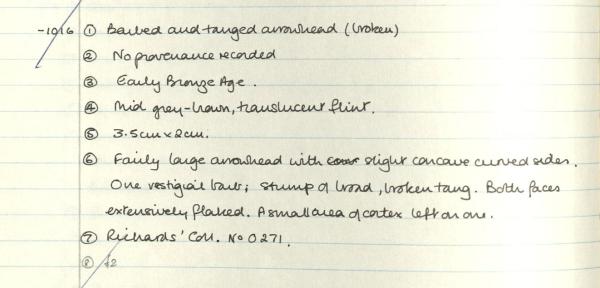 -1916 ① Barbed and tanged arrowhead (broken)
② No provenance recorded
③ Early Bronze Age.
④ Mid grey-brown, translucent flint.
⑤ 3.5cm x 2cm.
⑥ Fairly large arrowhead with slight concave curved sides.
One vestigial barb; stump of broad, broken tang. Both faces
extensively flaked. A small area of cortex left on one.
⑦ Richards' Coll. No 0271.
⑧ f2